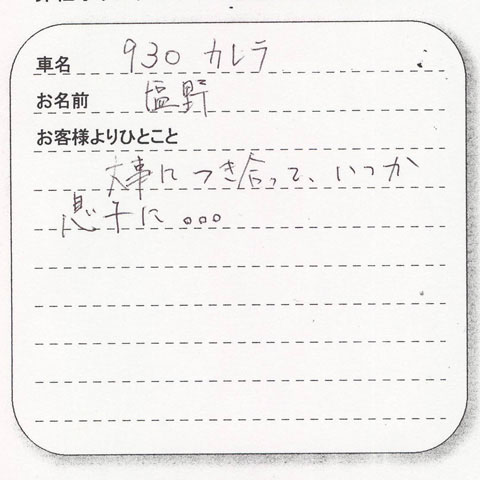 車名 930 カレラ
お名前 塩野
お客様よりひとこと
大事に つき合って、いつか
息子に 。。。